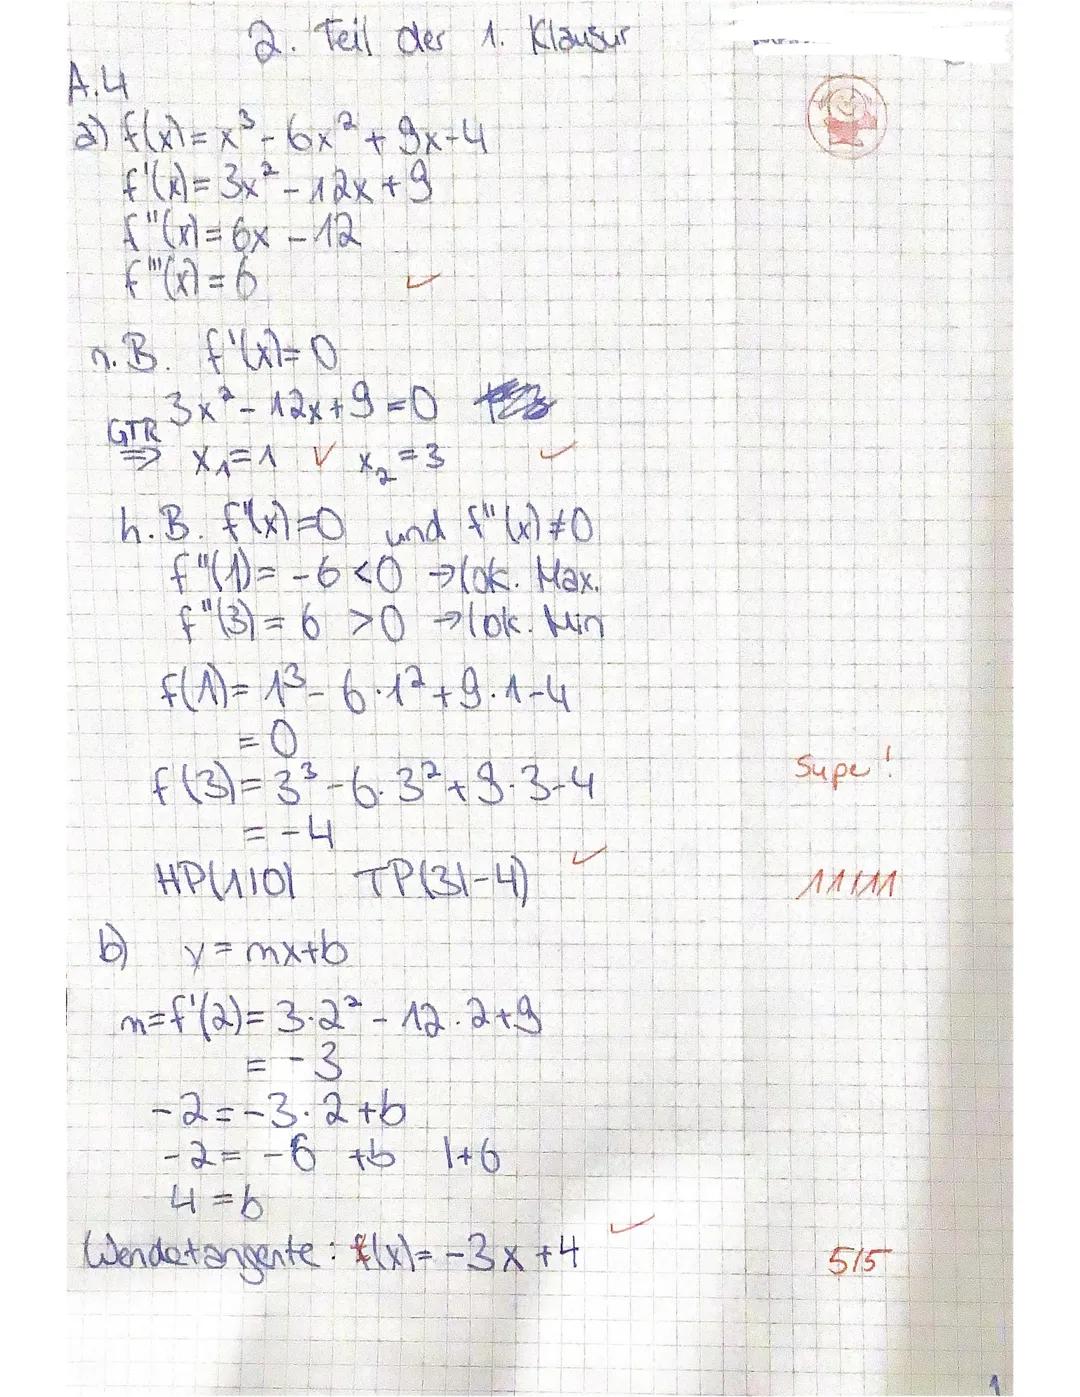 2. Teil der 1. Klausur
A.4
a) f(x) = x³ - 6x² + 9x - 4
f'(x) = 3x² - 12x + 9
f''(x) = 6x - 12
f'''(x) = 6 ✓
n.B. f'(x) = 0
3x² - 12x + 9 = 0
GTR
⇒ x₁ = 1 ✓ x₂ = 3 ✓
h.B. f'(x) = 0 und f''(x) ≠ 0
f''(1) = -6 < 0 → lok. Max.
f''(3) = 6 > 0 → lok. Min
f(1) = 1³ - 6·1² + 9·1 - 4
= 0
Supe!
f(3) = 3³ - 6·3² + 9·3 - 4
= -4
HP(1|0) TP(3|-4) ✓ 11/11
b) y = mx+b
m = f'(2) = 3·2² - 12·2+9
= -3
-2 = -3·2 + b
-2 = -6 +b |+6
4 = b
Wendetangente: t(x) = -3x + 4 ✓ 5/5
1